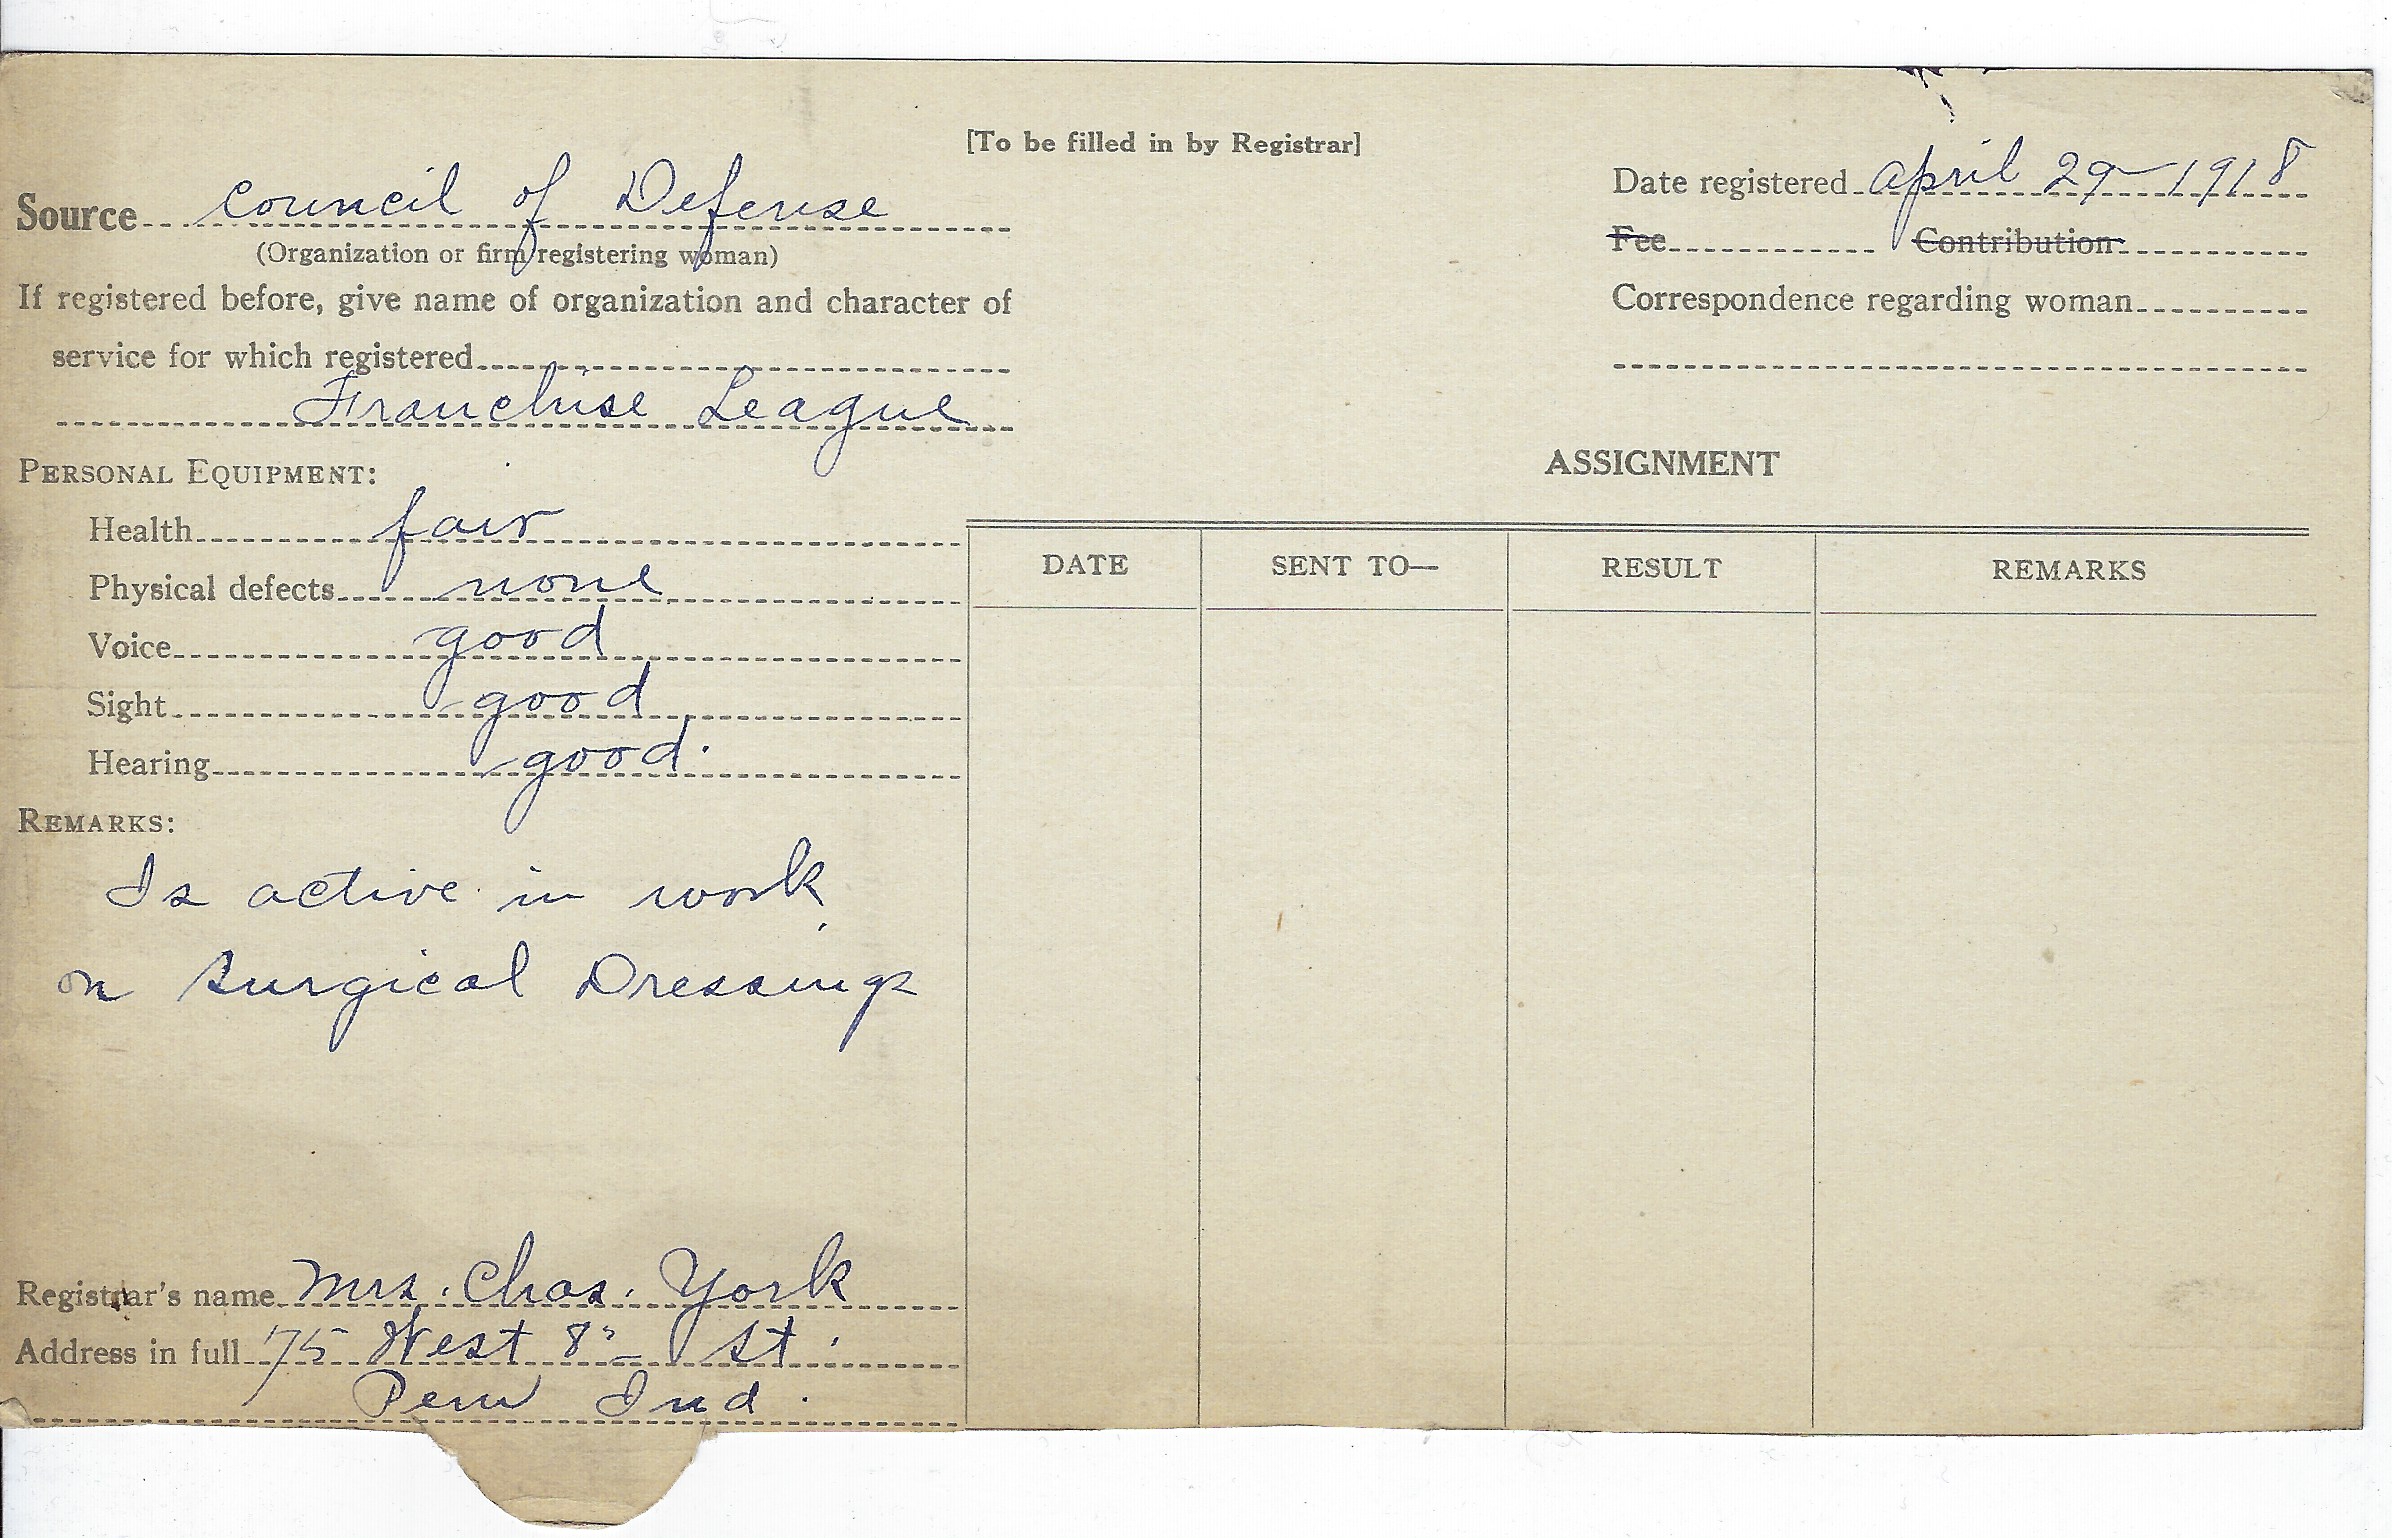 [To be filled in by Registrar]
Source Council of Defense
(Organization or firm registering woman)
If registered before, give name of organization and character of
service for which registered
Franchise League
Date registered April 29 - 1918
Fee Contribution
Correspondence regarding woman
PERSONAL EQUIPMENT:
Health fair
Physical defects none
Voice good
Sight good
Hearing good.
REMARKS:
Is active in work
on Surgical Dressings
Registrar's name Mrs. Chas. York
Address in full 75 West 8" St.
Peru Ind.
ASSIGNMENT
DATE SENT TO— RESULT REMARKS